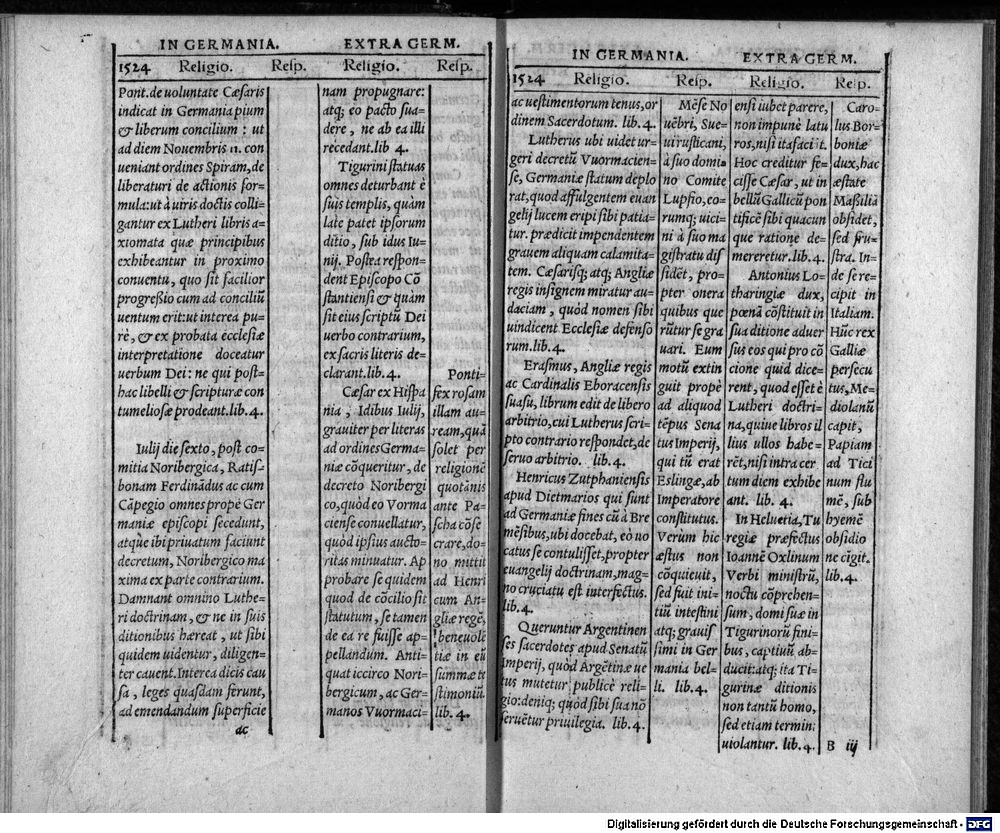 IN GERMANIA. EXTRA GERM.
1524 Religio. Resp. Religio. Resp.
Pont. de uoluntate Cæsaris
indicat in Germania pium
& liberum concilium : ut
ad diem Nouembris 11. con
ueniant ordines Spiram, de
liberaturi de actionis for=
mula: ut à uiris doctis colli=
gantur ex Lutheri libris a=
xiomata quæ principibus
exhibeantur in proximo
conuentu, quo sit facilior
progreßio cum ad conciliũ
uentum erit: ut interea pu=
rè, & ex probata ecclesiæ
interpretatione doceatur
uerbum Dei : ne qui post=
hac libelli & scripturæ con
tumeliosæ prodeant. lib. 4.
Iulij die sexto, post co=
mitia Noribergica, Ratis=
bonam Ferdinãdus ac cum
Cãpegio omnes propè Ger
maniæ episcopi secedunt,
atque ibi priuatum faciunt
decretum, Noribergico ma
xima ex parte contrarium.
Damnant omnino Luthe=
ri doctrinam, & ne in suis
ditionibus hæreat , ut sibi
quidem uidentur, diligen=
ter cauent. Interea dicis cau
sa , leges quasdam ferunt,
ad emendandum superficie
ac
nam propugnare:
atq; eo pacto sua=
dere , ne ab ea illi
recedant. lib 4.
Tigurini statuas
omnes deturbant è
suis templis, quàm
late patet ipsorum
ditio, sub idus Iu=
nij. Postea respon=
dent Episcopo Cõ
stantiensi & quàm
sit eius scriptũ Dei
uerbo contrarium,
ex sacris literis de=
clarant. lib 4.
Cæsar ex Hispa
nia , Idibus Iulij,
grauiter per literas
ad ordines Germa=
niæ cõqueritur, de
decreto Noribergi
co, quòd eo Vorma
ciense conuellatur,
quòd ipsius aucto=
ritas minuatur. Ap
probare se quidem
quod de cõcilio sit
statutum, se tamen
de ea re fuisse ap=
pellandum. Anti=
quat iccirco Nori=
bergicum, ac Ger=
manos Vuormaci=
Ponti=
fex rosam
illam au=
ream, quã
solet per
religionẽ
quotãnis
ante Pa=
scha cõse
crare, do=
no mittit
ad Henri
cum An=
gliæ regẽ,
beneuolẽ
tiæ in eũ
summæ te
stimoniũ.
lib. 4.
IN GERMANIA. EXTRA GERM.
1524 Religio. Resp. Religio. Resp.
ac uestimentorum tenus, or
dinem Sacerdotum. lib. 4.
Lutherus ubi uidet ur=
geri decretũ Vuormacien=
se, Germaniæ statum deplo
rat, quod affulgentem euan
gelij lucem eripi sibi patia=
tur. prædicit impendentem
grauem aliquam calamita=
tem. Cæsarisq; atq; Angliæ
regis insignem miratur au=
daciam , quòd nomen sibi
uindicent Ecclesiæ defenso
rum. lib. 4.
Erasmus, Angliæ regis
ac Cardinalis Eboracensis
suasu, librum edit de libero
arbitrio, cui Lutherus scri=
pto contrario respondet, de
seruo arbitrio. lib. 4.
Henricus Zutphaniensis
apud Dietmarios qui sunt
ad Germaniæ fines cũ à Bre
mẽsibus, ubi docebat, eò uo
catus se contulisset, propter
euangelij doctrinam, mag=
no cruciatu est interfectus.
lib. 4.
Queruntur Argentinen
ses sacerdotes apud Senatũ
Imperij, quòd Argẽtinæ ue
tus mutetur publicè reli=
gio: deniq; quòd sibi sua nõ
seruẽtur priuilegia. lib. 4.
Mẽse No
uẽbri, Sue=
ui rusticani,
à suo domi=
no Comite
Lupfio, eo=
rumq; uici=
ni à suo ma
gistratu dis
sidẽt, pro=
pter onera
quibus que
rũtur se gra
uari. Eum
motũ extin
guit propè
ad aliquod
tẽpus Sena
tus Imperij,
qui tũ erat
Eslingæ, ab
Imperatore
constitutus.
Verum hic
æstus non
cõquieuit,
sed fuit ini=
tiũ intestini
atq; grauis
simi in Ger
mania bel=
li. lib. 4.
ensi iubet parere,
non impunè latu
ros, nisi ita faciãt.
Hoc creditur fe=
cisse Cæsar , ut in
bellũ Gallicũ pon
tificẽ sibi quacun
que ratione de=
mereretur. lib. 4.
Antonius Lo=
tharingiæ dux,
pœnã cõstituit in
sua ditione aduer
sus eos qui pro cõ
cione quid dice=
rent, quod esset è
Lutheri doctri=
na, quiue libros il
lius ullos habe=
rẽt, nisi intra cer
tum diem exhibe
ant. lib. 4.
In Heluetia, Tu
regiæ præfectus
Ioannẽ Oxlinum
Verbi ministrũ,
noctu cõprehen=
sum, domi suæ in
Tigurinorũ fini=
bus, captiuũ ab=
ducit: atq; ita Ti=
gurinæ ditionis
non tantũ homo,
sed etiam termini
uiolantur. lib. 4.
Caro=
lus Bor=
boniæ
dux, hac
æstate
Maßiliã
obsidet,
sed fru=
stra. In=
de se re=
cipit in
Italiam.
Hũc rex
Galliæ
persecu
tus, Me=
diolanũ
capit,
Papiam
ad Tici
num flu
mẽ, sub
hyemẽ
obsidio
ne cĩgit.
lib. 4.
B iij
Digitalisierung gefördert durch die Deutsche Forschungsgemeinschaft - DFG